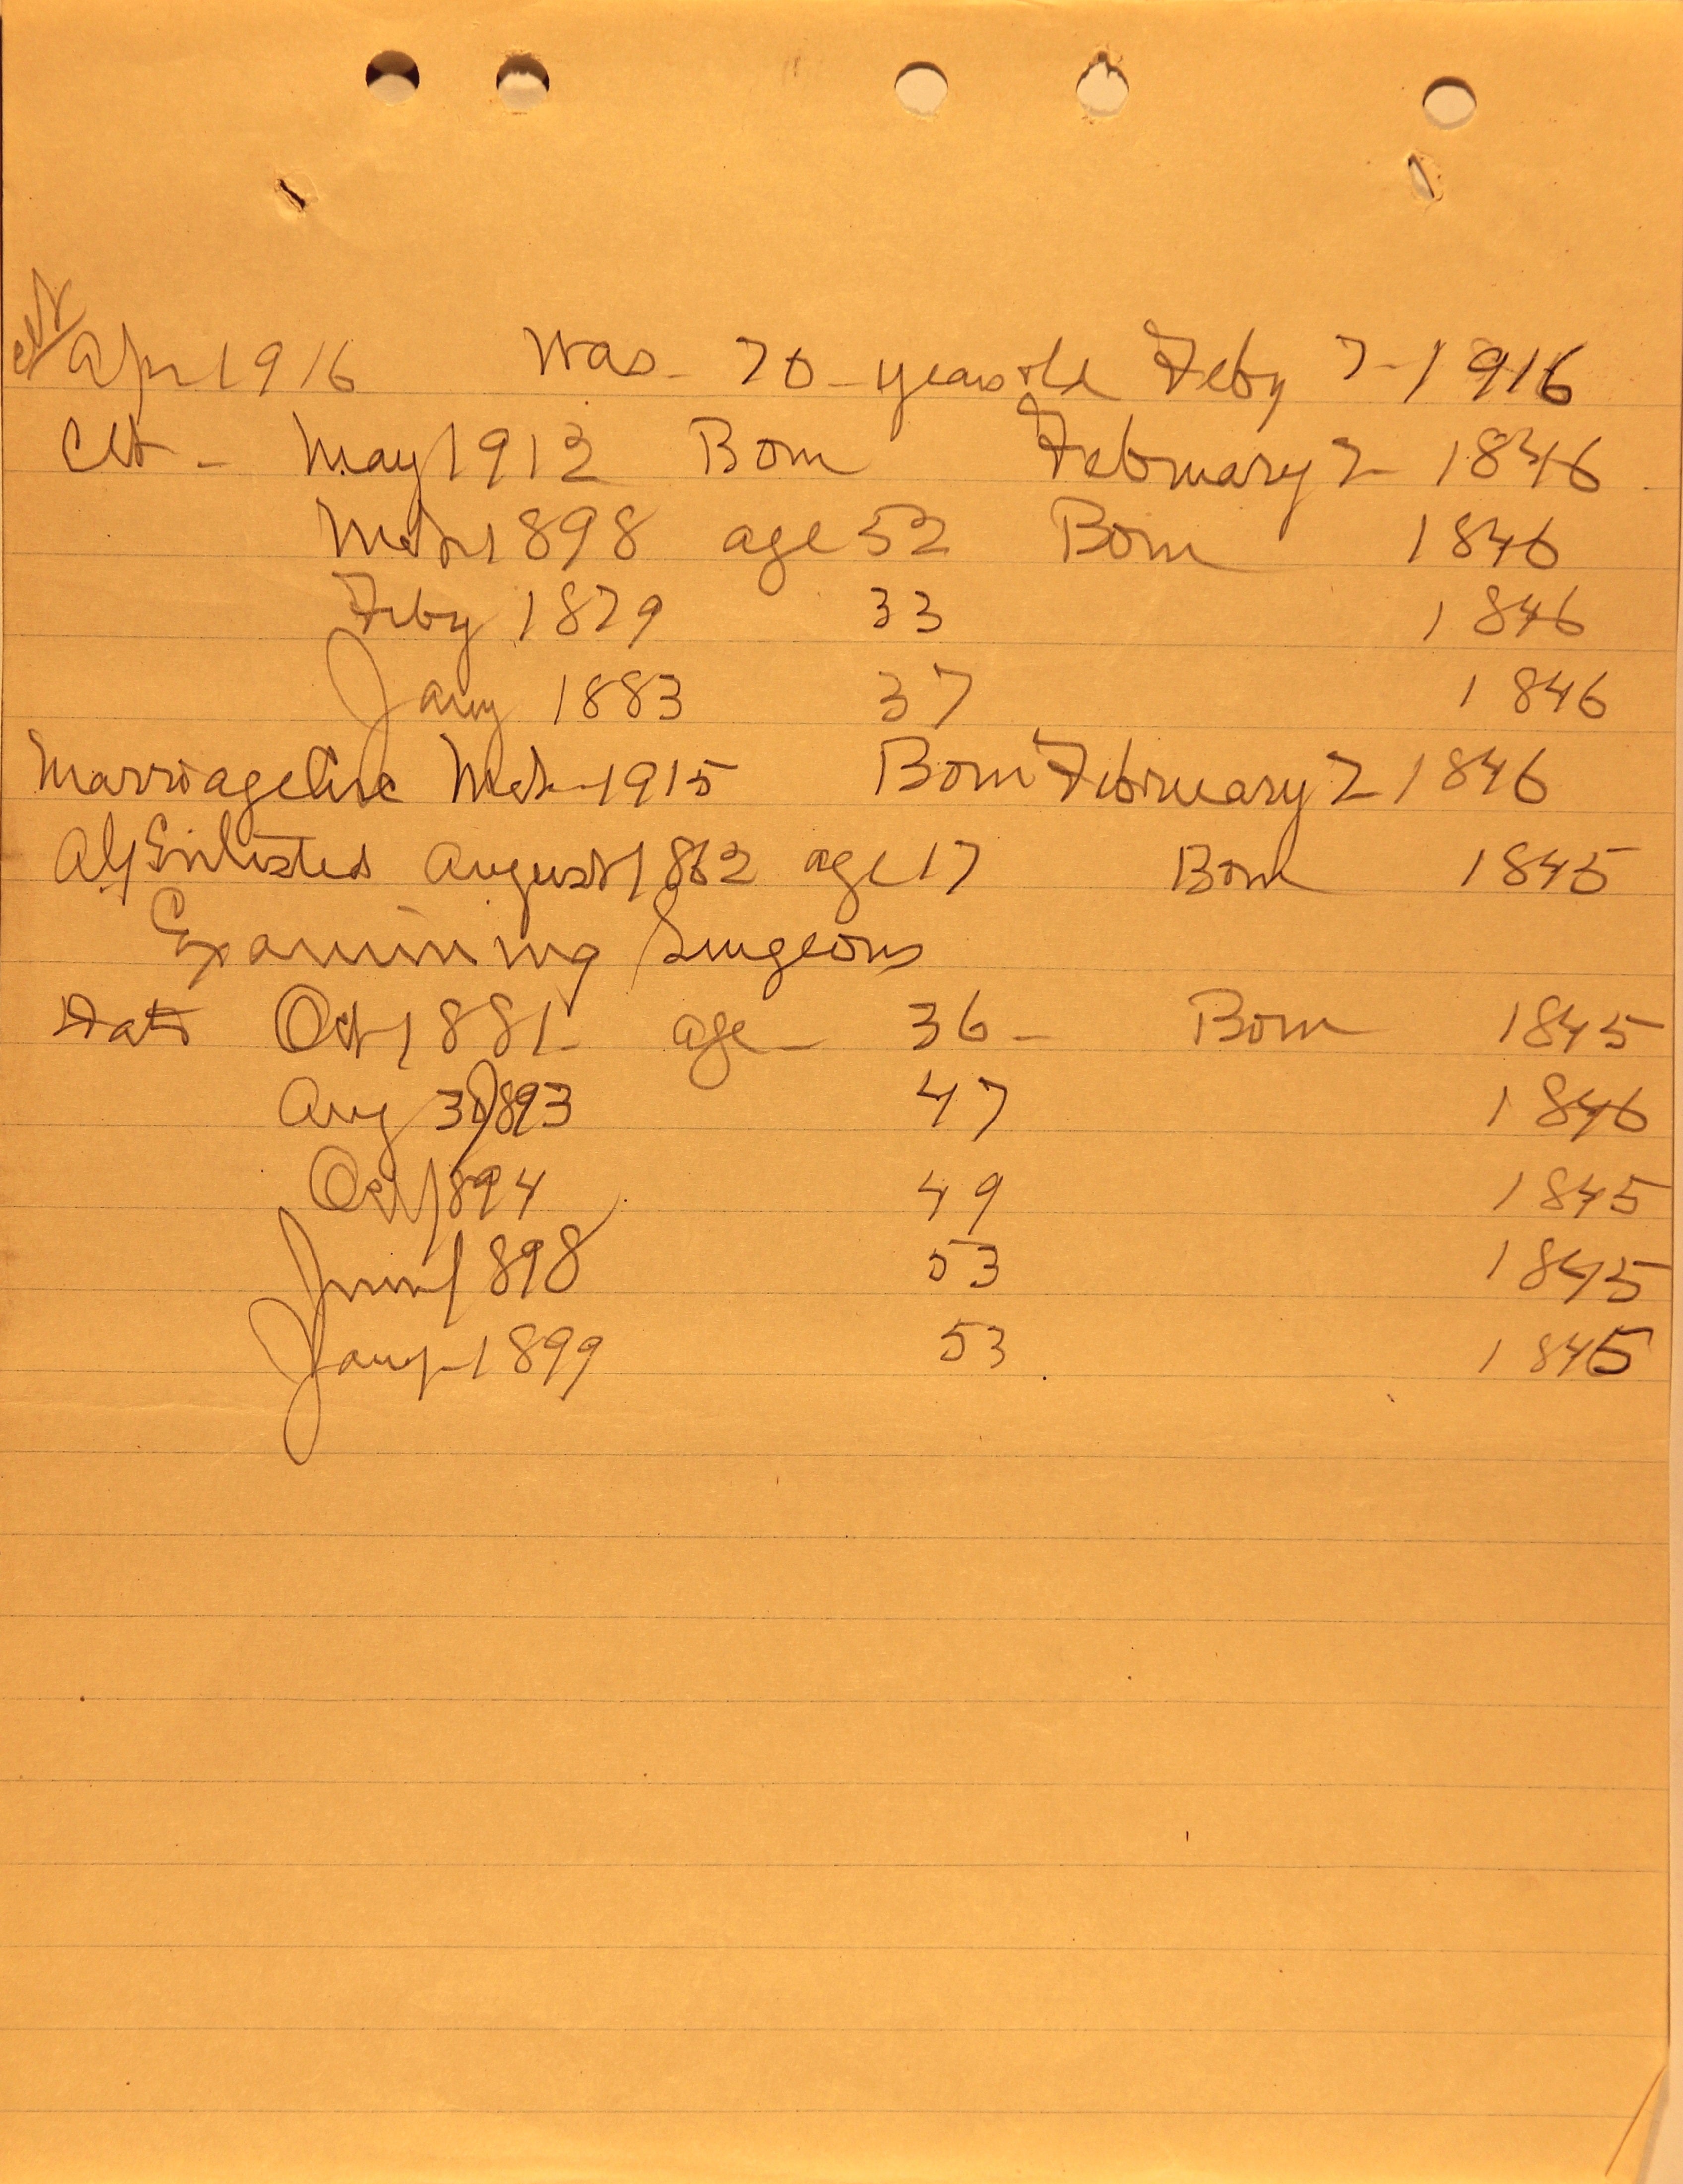 Clt
Apr 1916 Was - 70 - years old Feby 2 - 1916
Clt - May 1912 Born February 2 1846
Mch 1898 age 52 Born 1846
Feby 1879 33 1846
Jany 1883 37 1846
Marriage Mch - 1915 Born February 2 1846
Enlisted August 1862 age 17 Born 1845
Examining Surgeons
Date Oct 1881 - age - 36 - Born 1845
Aug 30 1893 47 1846
Oct 1894 49 1845
June 1898 53 1845
Jany - 1899 53 1845